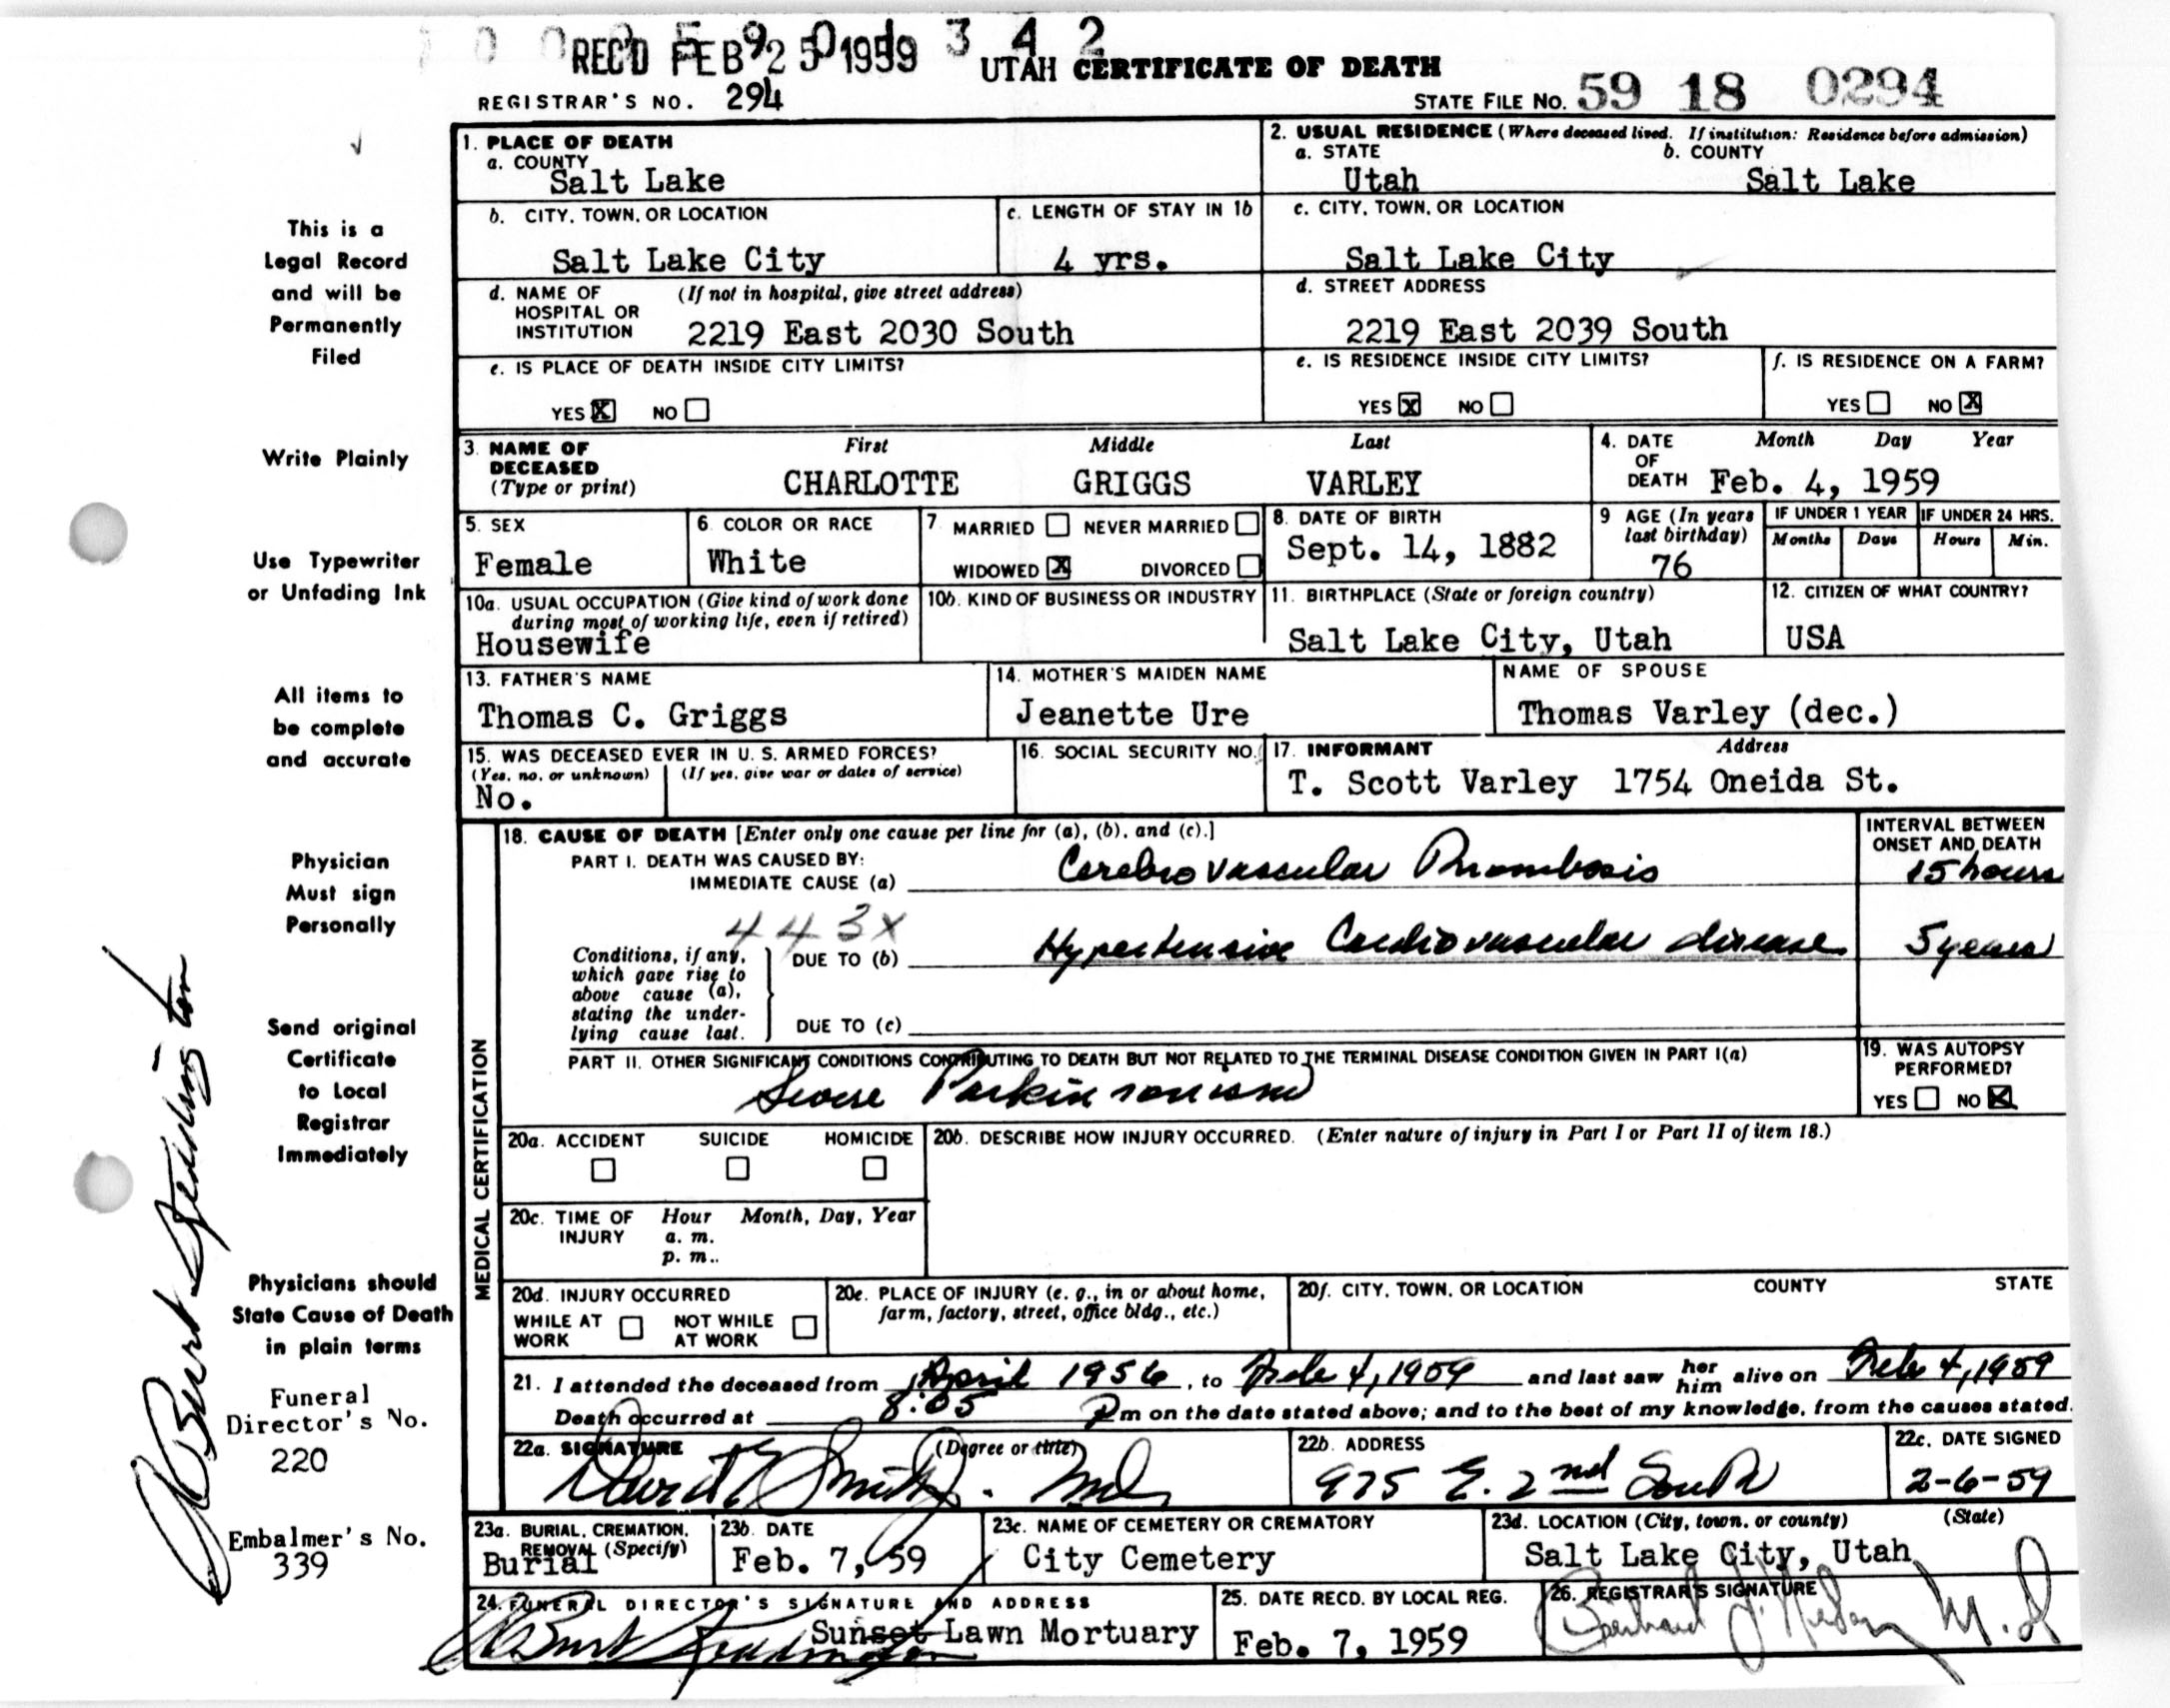 REC'D FEB 25 1959
342
UTAH CERTIFICATE OF DEATH
REGISTRAR'S NO. 294
STATE FILE NO. 59 18 0294
This is a
Legal Record
and will be
Permanently
Filed
Write Plainly
Use Typewriter
or Unfading Ink
All items to
be complete
and accurate
Physician
Must sign
Personally
Send original
Certificate
to Local
Registrar
Immediately
Physicians should
State Cause of Death
in plain terms
Funeral
Director's No.
220
Embalmer's No.
339
1. PLACE OF DEATH
a. COUNTY
Salt Lake
2. USUAL RESIDENCE (Where deceased lived. If institution: Residence before admission)
a. STATE b. COUNTY
Utah Salt Lake
b. CITY, TOWN, OR LOCATION
Salt Lake City
c. LENGTH OF STAY IN 1b
4 yrs.
c. CITY, TOWN, OR LOCATION
Salt Lake City
d. NAME OF (If not in hospital, give street address)
HOSPITAL OR
INSTITUTION 2219 East 2030 South
d. STREET ADDRESS
2219 East 2039 South
e. IS PLACE OF DEATH INSIDE CITY LIMITS?
YES X NO
e. IS RESIDENCE INSIDE CITY LIMITS?
YES X NO
f. IS RESIDENCE ON A FARM?
YES NO X
3. NAME OF First Middle Last
DECEASED
(Type or print) CHARLOTTE GRIGGS VARLEY
4. DATE Month Day Year
OF
DEATH Feb. 4, 1959
5. SEX
Female
6. COLOR OR RACE
White
7 MARRIED NEVER MARRIED
WIDOWED X DIVORCED
8. DATE OF BIRTH
Sept. 14, 1882
9 AGE (In years
last birthday)
76
IF UNDER 1 YEAR
Months Days
IF UNDER 24 HRS.
Hours Min.
10a. USUAL OCCUPATION (Give kind of work done
during most of working life, even if retired)
Housewife
10b. KIND OF BUSINESS OR INDUSTRY
11. BIRTHPLACE (State or foreign country)
Salt Lake City, Utah
12. CITIZEN OF WHAT COUNTRY?
USA
13. FATHER'S NAME
Thomas C. Griggs
14. MOTHER'S MAIDEN NAME
Jeanette Ure
NAME OF SPOUSE
Thomas Varley (dec.)
15. WAS DECEASED EVER IN U. S. ARMED FORCES?
(Yes, no, or unknown) (If yes, give war or dates of service)
No.
16. SOCIAL SECURITY NO.
17. INFORMANT Address
T. Scott Varley 1754 Oneida St.
MEDICAL CERTIFICATION
18. CAUSE OF DEATH [Enter only one cause per line for (a), (b), and (c).]
INTERVAL BETWEEN
ONSET AND DEATH
PART I. DEATH WAS CAUSED BY:
IMMEDIATE CAUSE (a) Cerebro vascular Thrombosis 15 hours
443X
Conditions, if any,
which gave rise to
above cause (a),
stating the under-
lying cause last.
DUE TO (b) Hypertensive Cardiovascular disease 5 years
DUE TO (c)
PART II. OTHER SIGNIFICANT CONDITIONS CONTRIBUTING TO DEATH BUT NOT RELATED TO THE TERMINAL DISEASE CONDITION GIVEN IN PART I(a)
Severe Parkinsonism
19. WAS AUTOPSY
PERFORMED?
YES NO X
20a. ACCIDENT SUICIDE HOMICIDE
20b. DESCRIBE HOW INJURY OCCURRED. (Enter nature of injury in Part I or Part II of item 18.)
20c. TIME OF Hour Month, Day, Year
INJURY a. m.
p. m..
20d. INJURY OCCURRED
WHILE AT NOT WHILE
WORK AT WORK
20e. PLACE OF INJURY (e. g., in or about home,
farm, factory, street, office bldg., etc.)
20f. CITY, TOWN, OR LOCATION COUNTY STATE
21. I attended the deceased from April 1956, to Feb 4, 1959 and last saw her him alive on Feb 4, 1959
Death occurred at 8:05 Pm on the date stated above; and to the best of my knowledge, from the causes stated.
22a. SIGNATURE (Degree or title)
David E Smith. MD
22b. ADDRESS
975 E. 2nd South
22c. DATE SIGNED
2-6-59
23a. BURIAL, CREMATION,
REMOVAL (Specify)
Burial
23b. DATE
Feb. 7, 59
23c. NAME OF CEMETERY OR CREMATORY
City Cemetery
23d. LOCATION (City, town, or county) (State)
Salt Lake City, Utah
24. FUNERAL DIRECTOR'S SIGNATURE AND ADDRESS
Sunset Lawn Mortuary
25. DATE RECD. BY LOCAL REG.
Feb. 7, 1959
26. REGISTRAR'S SIGNATURE
M.D